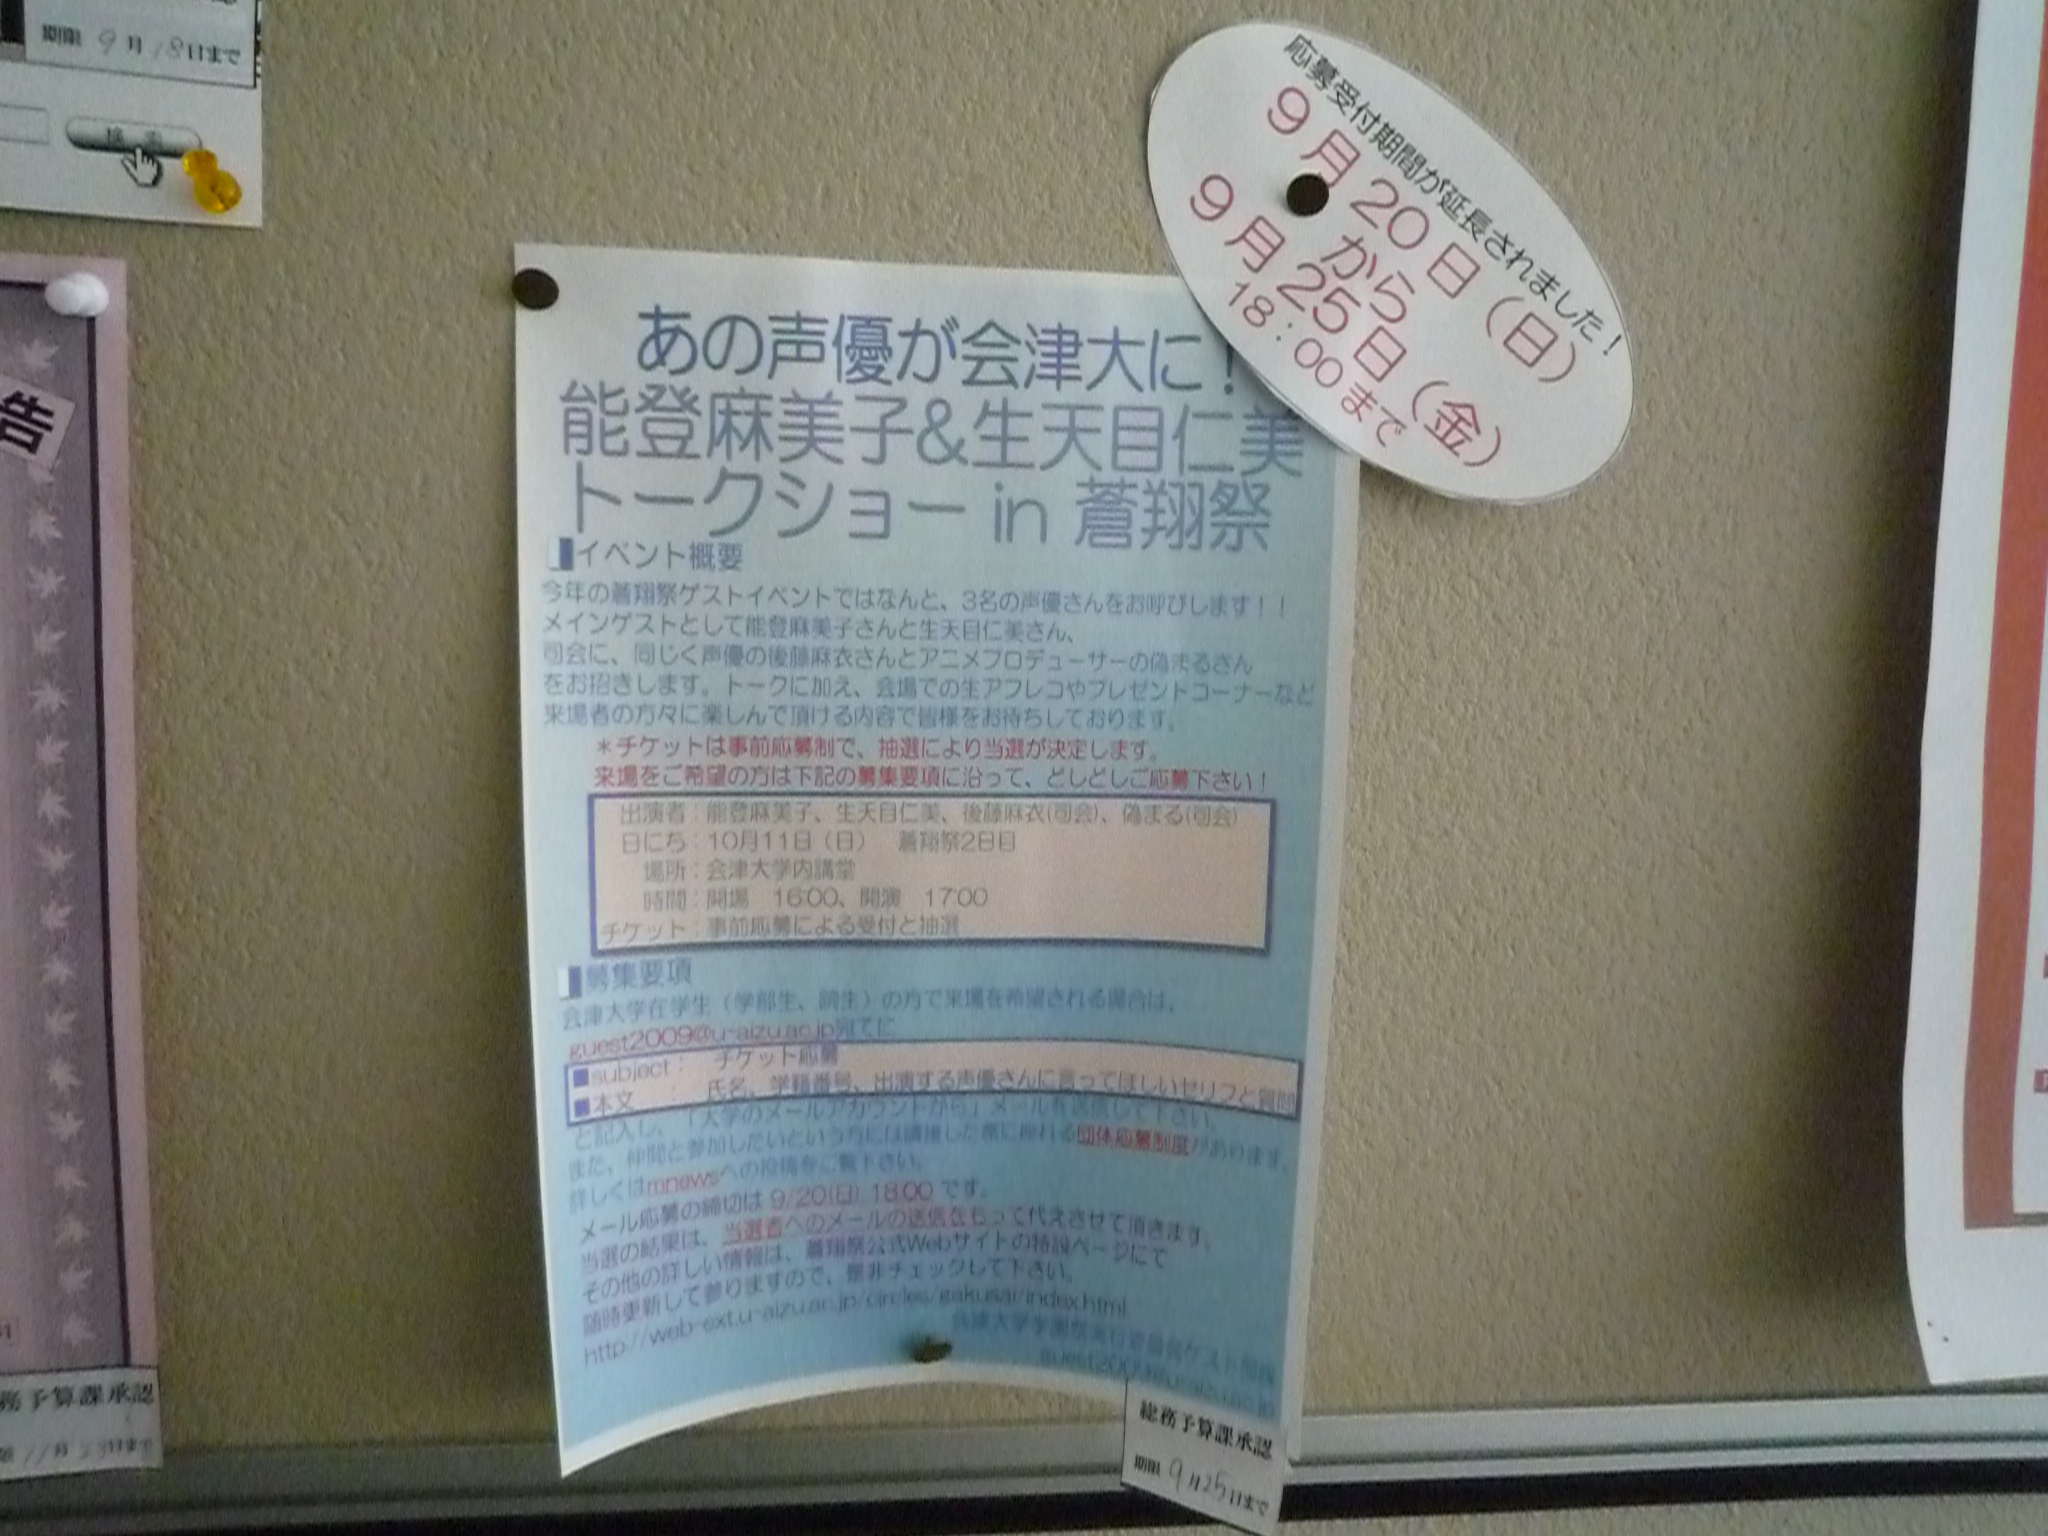 期限 9月18日まで
検索
告
応募受付期間が延長されました！
9月20日（日）
から
9月25日（金）
18：00まで
あの声優が会津大に！
能登麻美子&生天目仁美
トークショー in 蒼翔祭
イベント概要
今年の蒼翔祭ゲストイベントではなんと、3名の声優さんをお呼びします！！
メインゲストとして能登麻美子さんと生天目仁美さん、
司会に、同じく声優の後藤麻衣さんとアニメプロデューサーの偽まるさん
をお招きします。トークに加え、会場での生アフレコやプレゼントコーナーなど
来場者の方々に楽しんで頂ける内容で皆様をお待ちしております。
＊チケットは事前応募制で、抽選により当選が決定します。
来場をご希望の方は下記の募集要項に沿って、どしどしご応募下さい！
出演者：能登麻美子、生天目仁美、後藤麻衣(司会)、偽まる(司会)
日にち：10月11日（日）　蒼翔祭2日目
場所：会津大学内講堂
時間：開場　16:00、開演　17:00
チケット：事前応募による受付と抽選
募集要項
会津大学在学生（学部生、院生）の方で来場を希望される場合は、
guest2009@u-aizu.ac.jp宛てに
■subject：　チケット応募
■本文　：　氏名、学籍番号、出演する声優さんに言ってほしいセリフと質問
と記入し、「大学のメールアカウントから」メールを送信して下さい。
また、仲間と参加したいという方には隣接した席に座れる団体応募制度があります。
詳しくはmnewsへの投稿をご覧下さい。
メール応募の締切は 9/20(日) 18:00 です。
当選の結果は、当選者へのメールの送信をもって代えさせて頂きます。
その他の詳しい情報は、蒼翔祭公式Webサイトの特設ページにて
随時更新して参りますので、是非チェックして下さい。
http://web-ext.u-aizu.ac.jp/circles/gakusai/index.html
会津大学学園祭実行委員会ゲスト
総務予算課承認
期限 9月25日まで
務予算課承認
限 11月23日まで